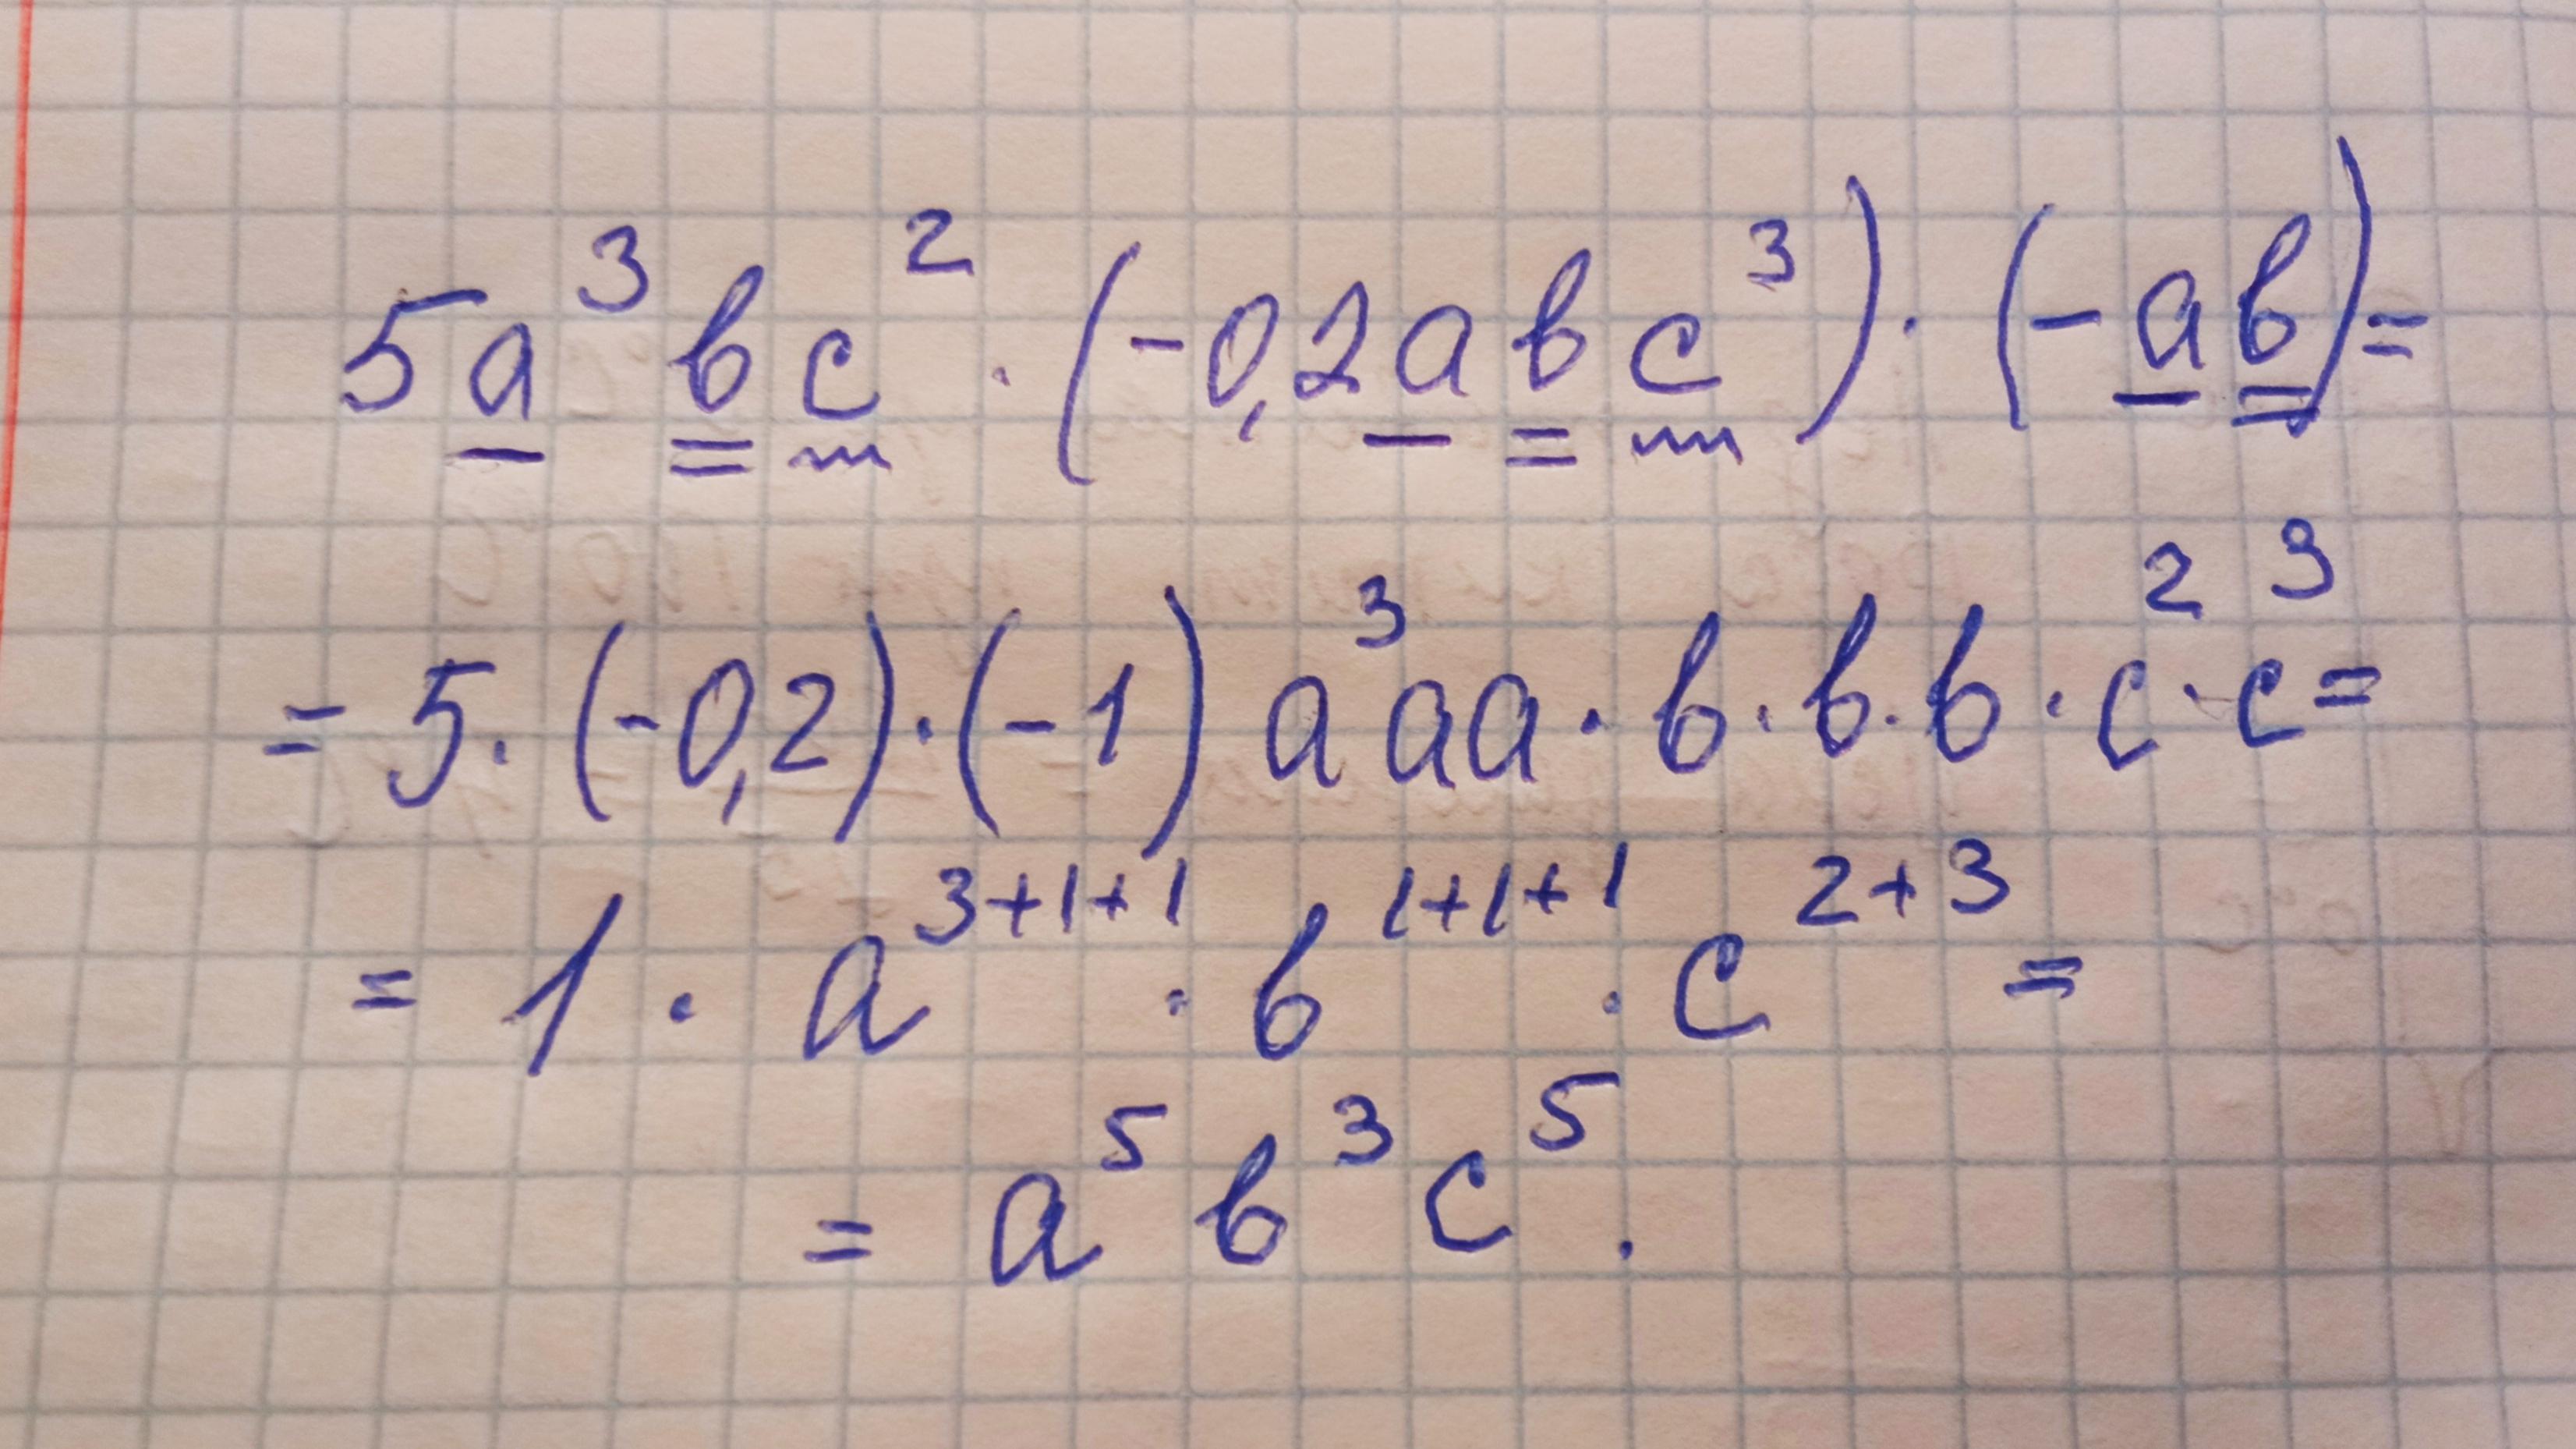 5a³bc² · (-0,2abc³) · (-ab)=
= 5 · (-0,2) · (-1) a³aa · b · b · b · c² · c³ =
= 1 · a³⁺¹⁺¹ · b¹⁺¹⁺¹ · c²⁺³ =
= a⁵b³c⁵.